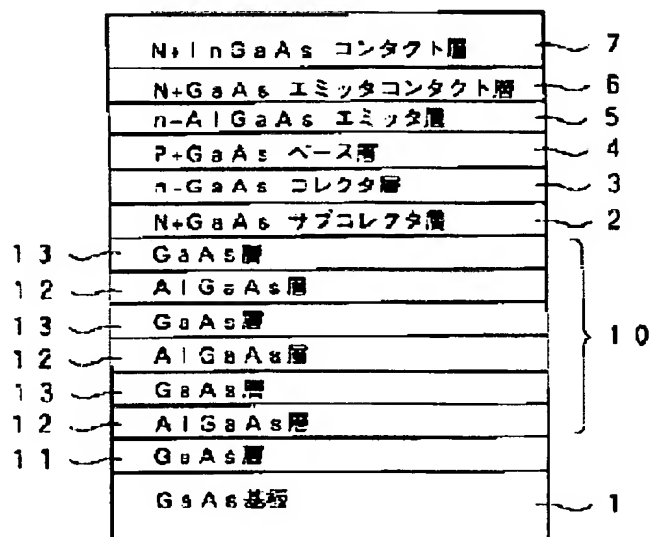 N+InGaAs コンタクト層 7
N+GaAs エミッタコンタクト層 6
n-AlGaAs エミッタ層 5
P+GaAs ベース層 4
n-GaAs コレクタ層 3
N+GaAs サブコレクタ層 2
13 GaAs層
12 AlGaAs層
13 GaAs層 10
12 AlGaAs層
13 GaAs層
12 AlGaAs層
11 GaAs層
GaAs基板 1